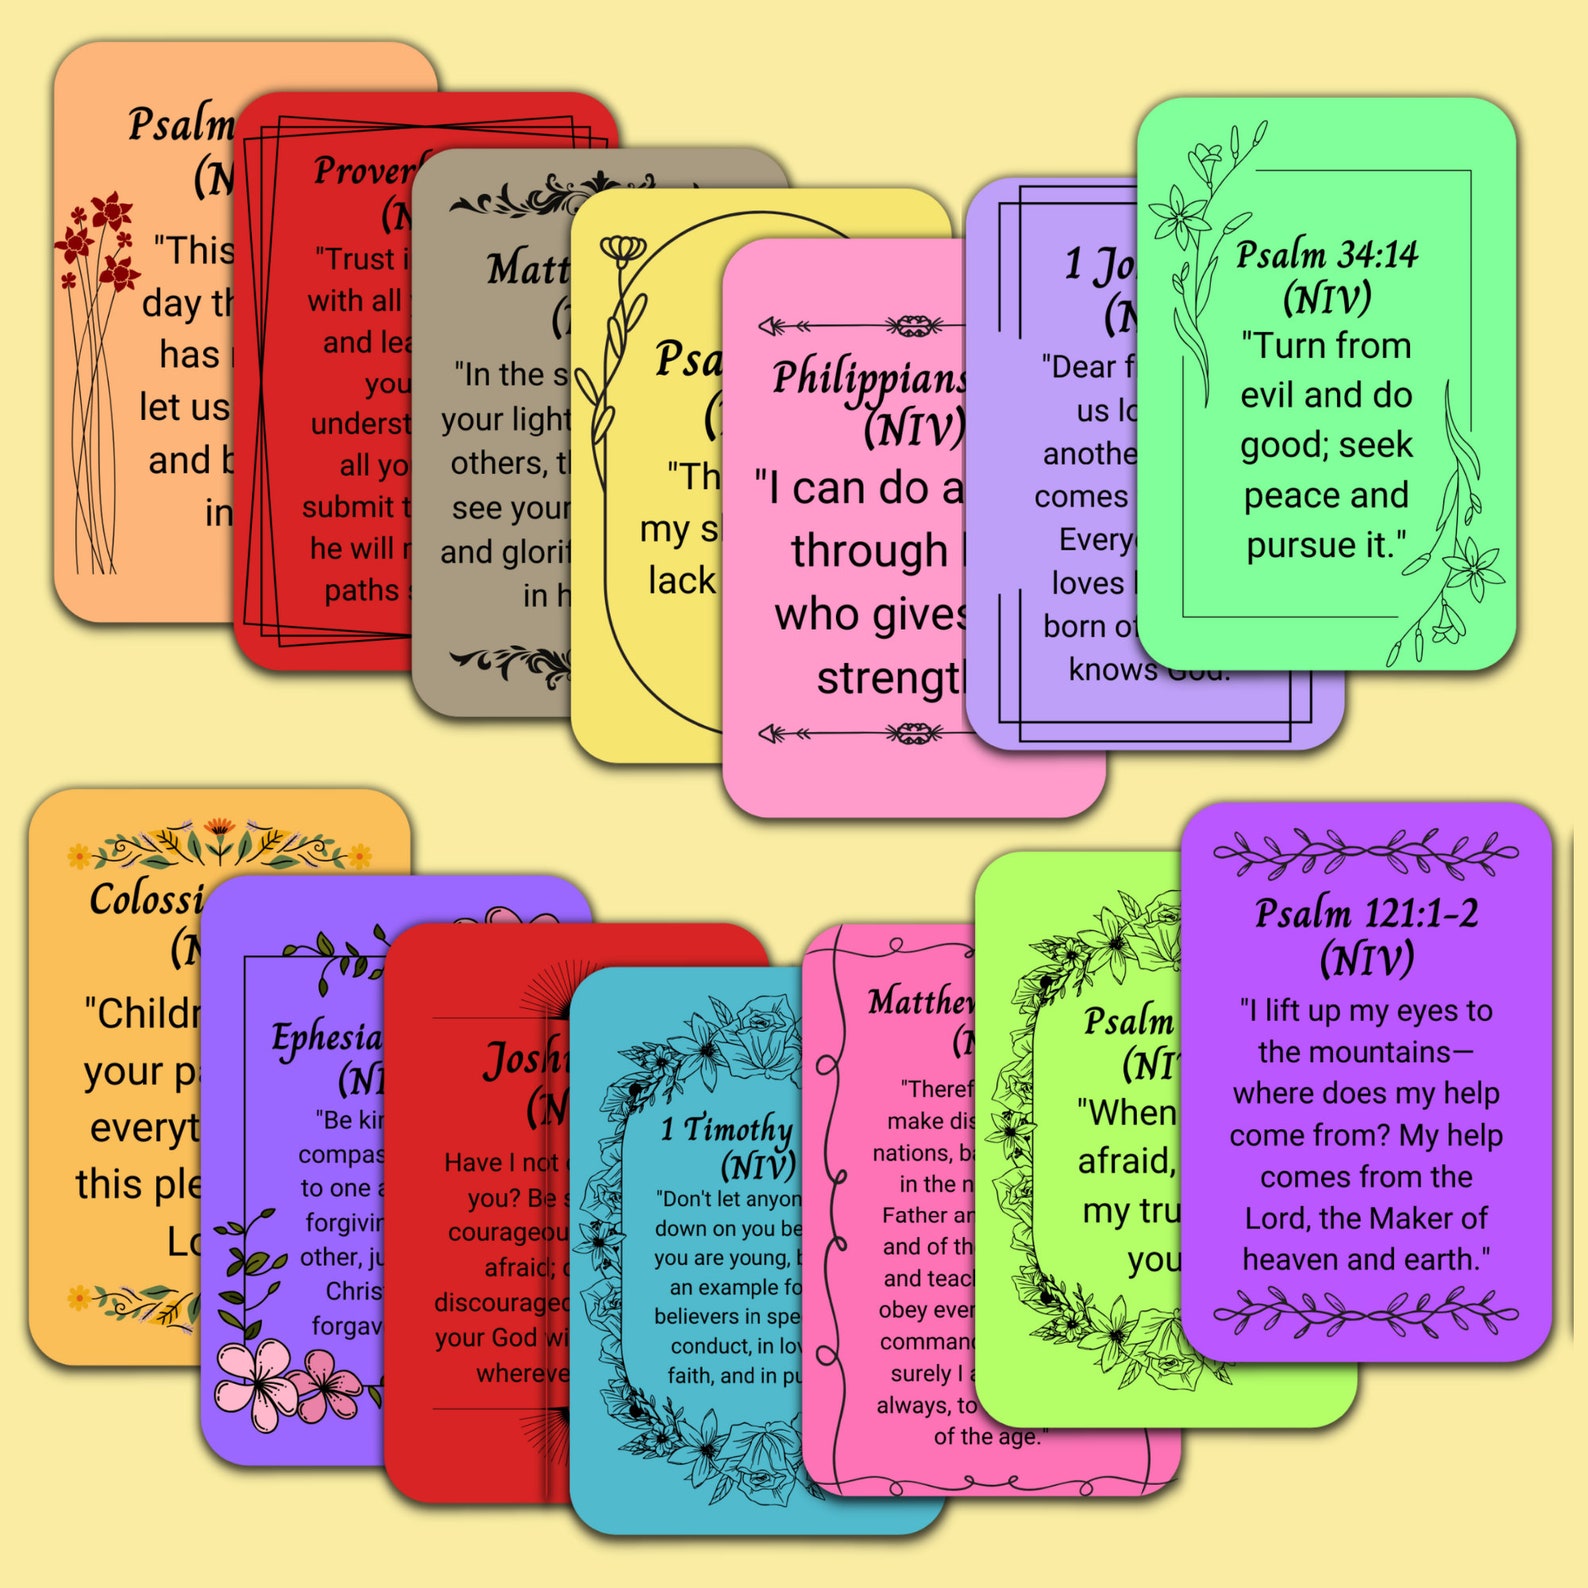 Psalm
"This
day
has
let us
and
in
Proverb
"Trust
with all
and
you
underst
all
submit
he will
paths
Matt
"In the
your light
others,
see your
and glorif
in
Psa
my
lack
Philippians
(NIV)
"I can do a
through
who gives
strengt
1 Jo
"Dear
us
anothe
comes
Every
loves
born of
knows God."
Psalm 34:14
(NIV)
"Turn from
evil and do
good; seek
peace and
pursue it."
Colossi
"Childr
your
everyt
this ple
Ephesia
"Be kin
compas
to one
forgivin
other,
Chris
forgav
Josh
Have I not
you? Be
courageou
afraid;
discouraged
your God wi
whereve
1 Timothy
(NIV)
"Don't let anyon
down on you be
you are young,
an example fo
believers in spe
conduct, in lov
faith, and in pu
Matthew
"Theref
make dis
nations, ba
in the n
Father an
and of th
and teach
obey ever
command
surely I
always, to
of the age."
Psalm
(NI
"When
afraid,
my tru
you
Psalm 121:1-2
(NIV)
"I lift up my eyes to
the mountains—
where does my help
come from? My help
comes from the
Lord, the Maker of
heaven and earth."